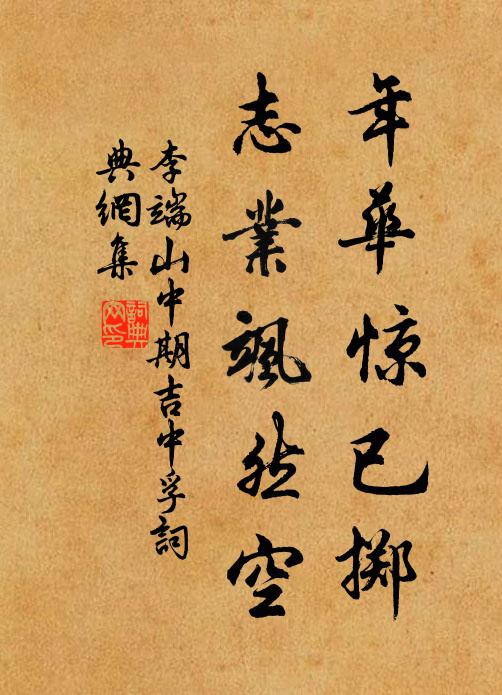 年華惊已擲
志業颯然空
李端山中期吉中孚詞
典網集
詞典网印